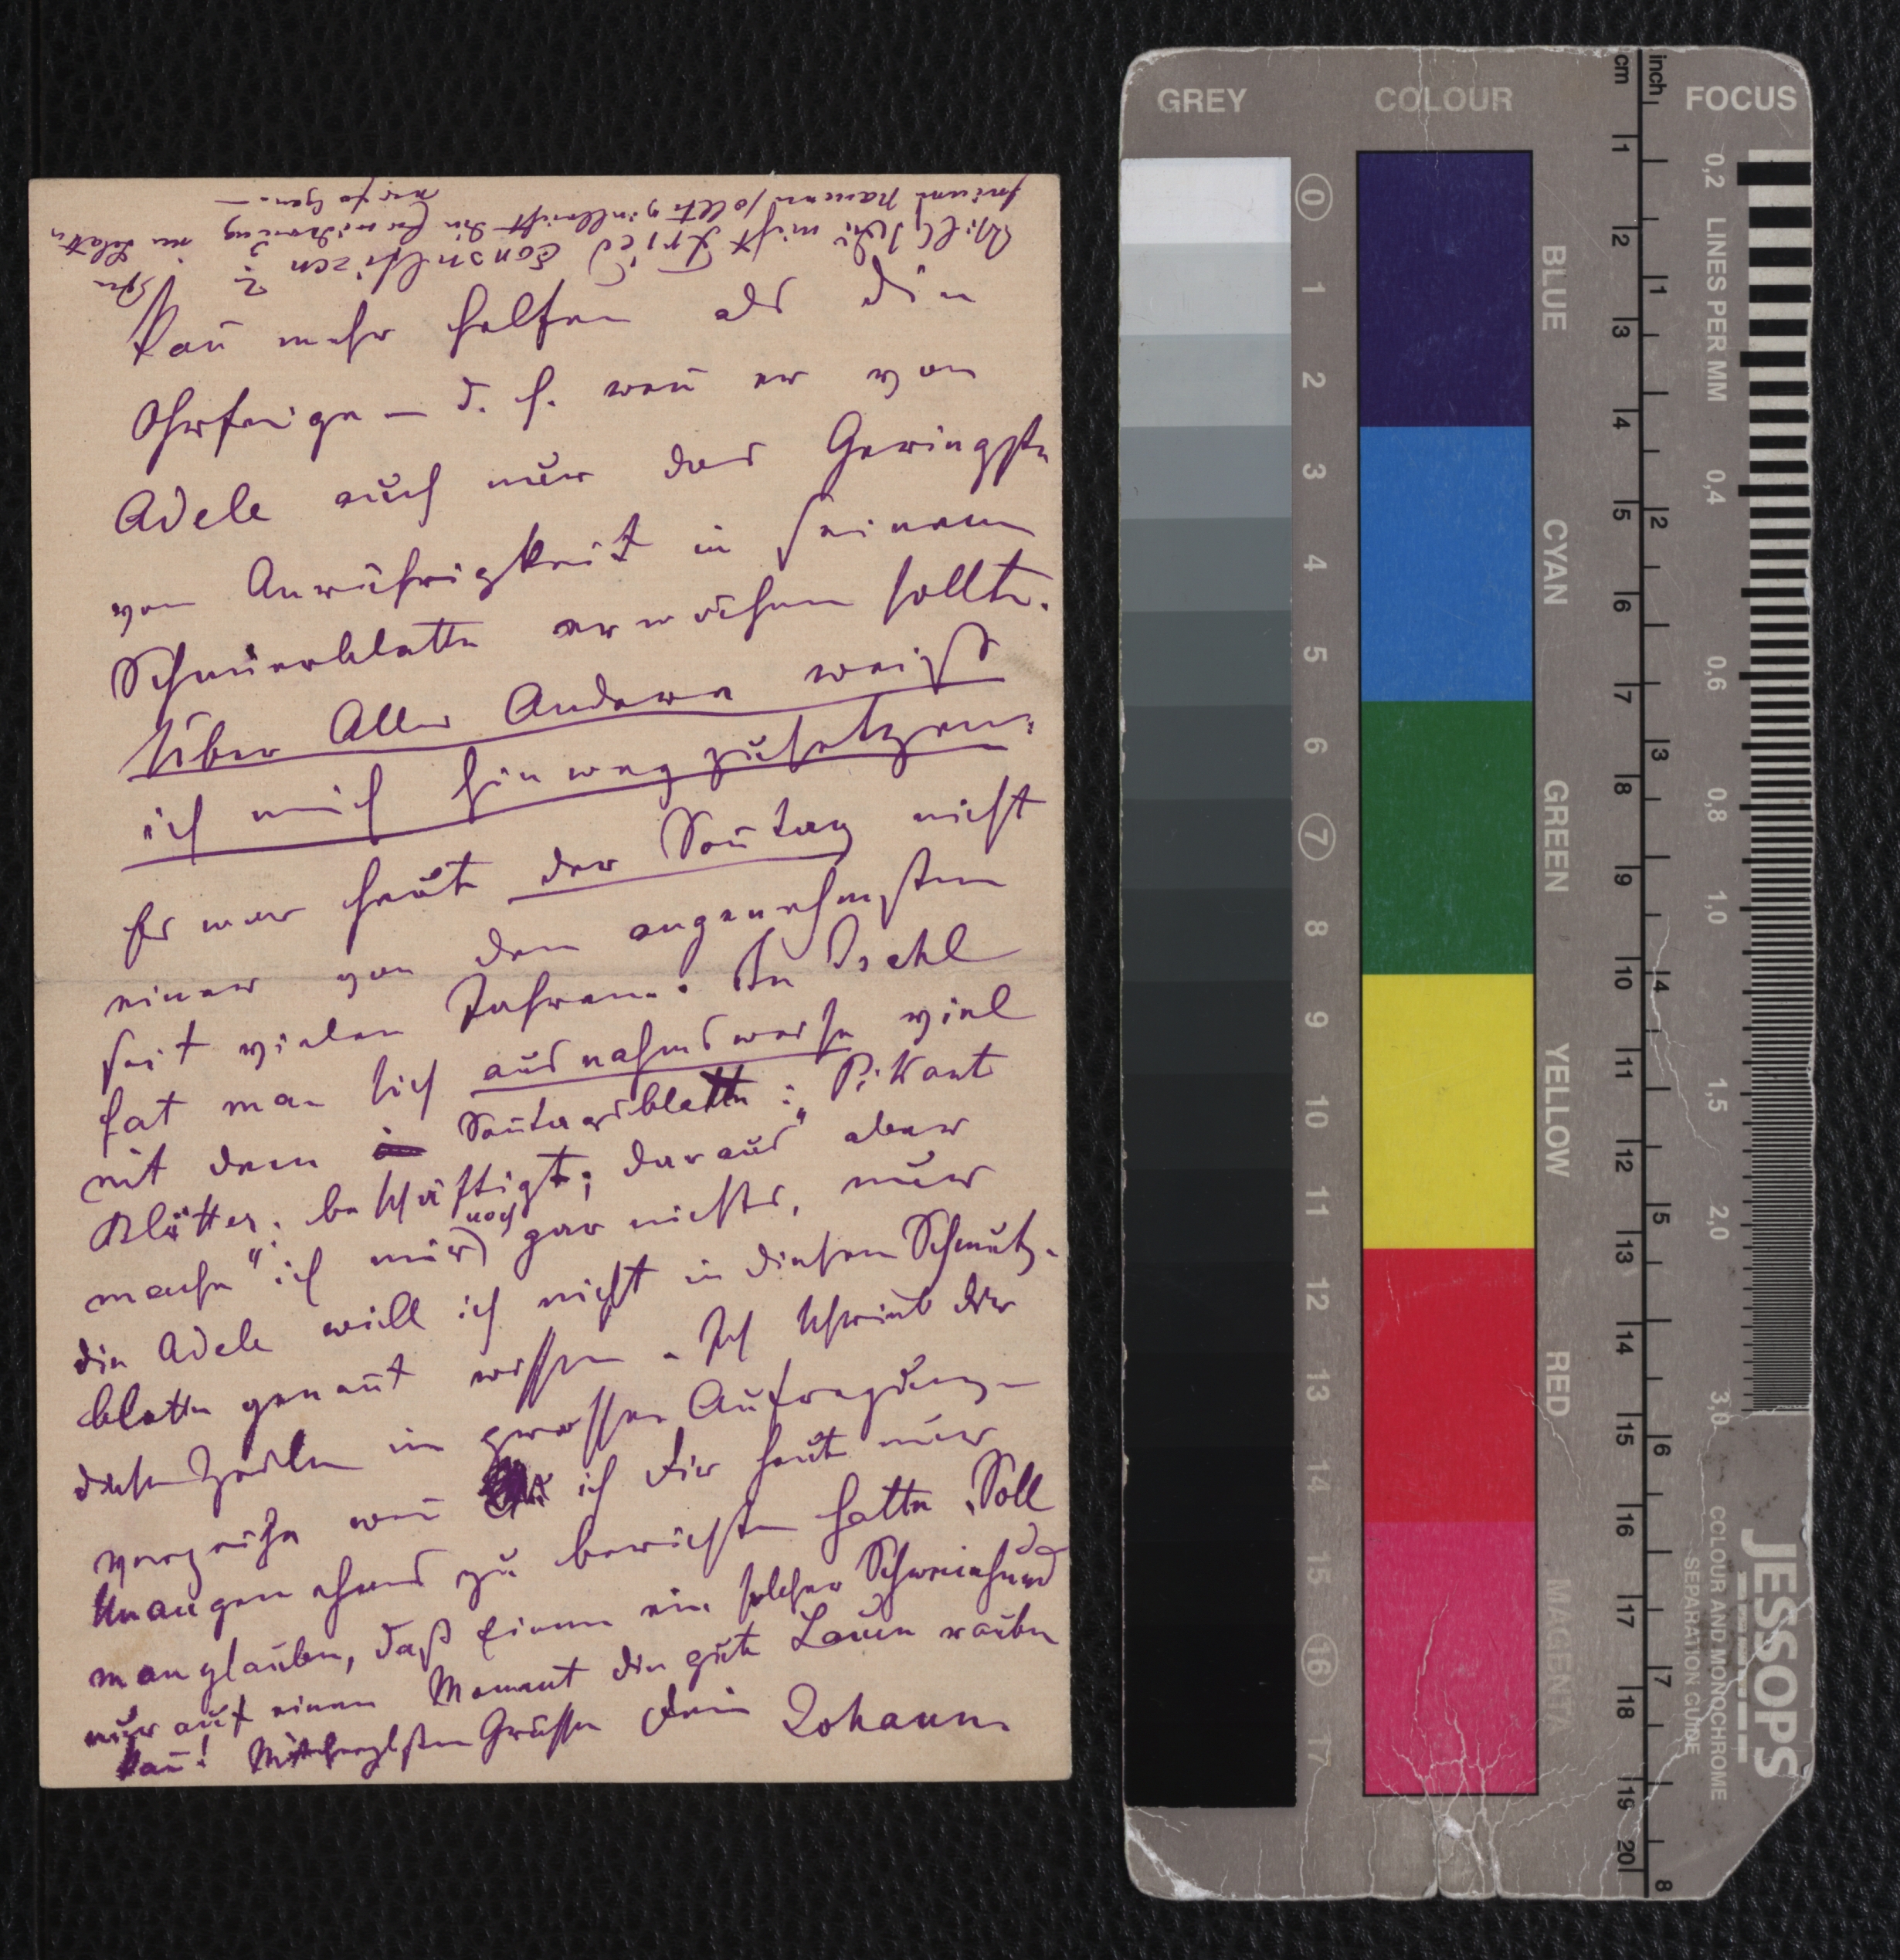 kañ mehr helfen als die
Ohrfeige – d. h. weñ er von
Adele auch nur das Geringste
von Anrüchigkeit in seinem
Schmierblatte erwähnen sollte.
Über Alles Andere weiß
ich mich hinwegzusetzen.
Es war heute der Soñtag nicht
einer von den angenehmsten
seit vielen Jahren. In Ischl
hat man sich ausnahmsweise viel
mit dem Soñtagsblatte: Pikante
Blätter. beschäftigt; daraus aber
mache ich mir noch gar nichts, nur
die Adele will ich nicht in diesem Schmutz-
blatte genañt wissen. Ich schreibe Dir
diese Zeilen in grosser Aufregung –
verzeihe weñ ich Dir heute nur
Unangenehmes zu berichten hatte. Soll da
man glauben, daß Einem ein solcher Schweinehund
nur auf einen Moment die gute Laune rauben
kañ! Mit herzlichsten Grüssen Dein Johann.
Willst Du nicht Fried consultiren?
GREY
COLOUR
FOCUS
cm
inch
0 1 2 3 4 5 6 7 8 9 10 11 12 13 14 15 16 17
BLUE
CYAN
GREEN
YELLOW
RED
MAGENTA
1 2 3 4 5 6 7 8 9 10 11 12 13 14 15 16 17 18 19 20
1 2 3 4 5 6 7 8
0,2 LINES PER MM 0,4 0,6 0,8 1,0 1,5 2,0 3,0
JESSOPS
COLOUR AND MONOCHROME
SEPARATION GUIDE